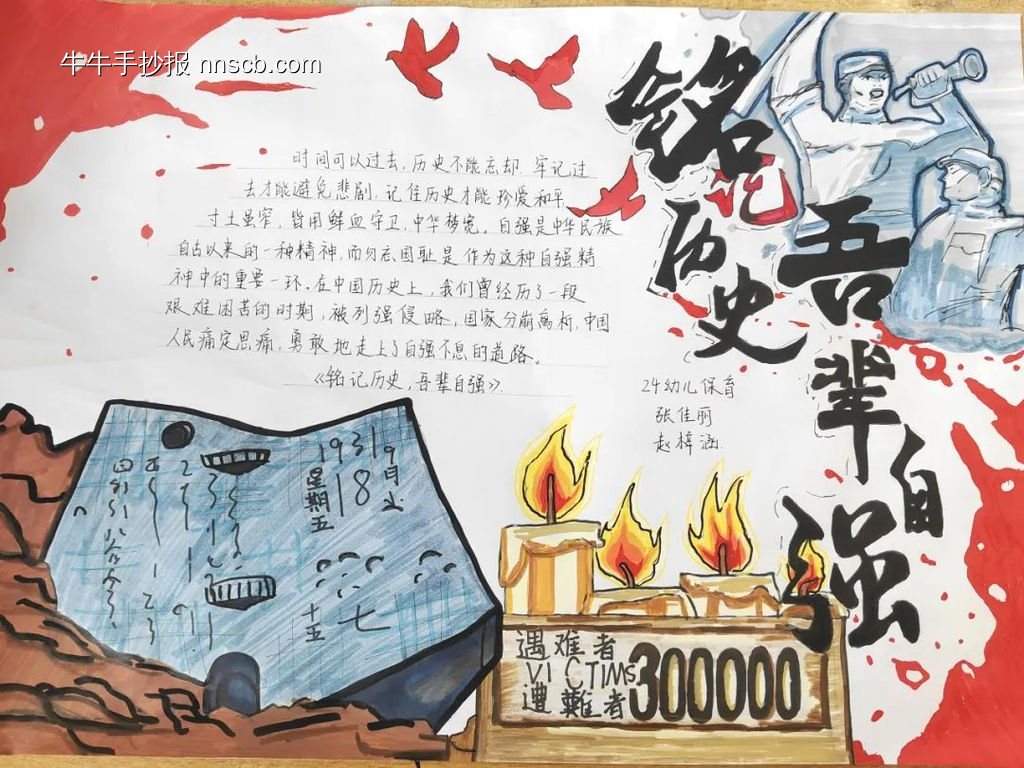 牛牛手抄报 nnscb.com
铭记历史
吾辈自强
时间可以过去,历史不能忘却,牢记过
去才能避免悲剧,记住历史才能珍爱和平
寸土虽窄,皆用鲜血守卫,中华梦宽,自强是中华民族
自古以来的一种精神,而勿忘国耻是作为这种自强精
神中的重要一环,在中国历史上,我们曾经历了一段
艰难困苦的时期,被列强侵略,国家分崩离析,中国
人民痛定思痛,勇敢地走上了自强不息的道路。
《铭记历史,吾辈自强》
24幼儿保育
张佳丽
赵梓涵
1931
9月
18
星期五
十五
七
遇难者
VICTIMS
遭難者
300000